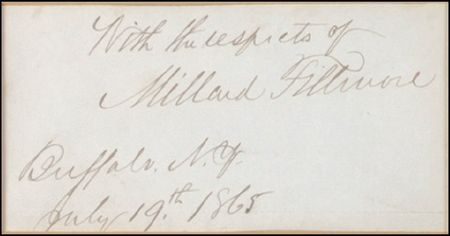 With the respects of
Millard Fillmore
Buffalo. N.Y.
July 19.th 1865